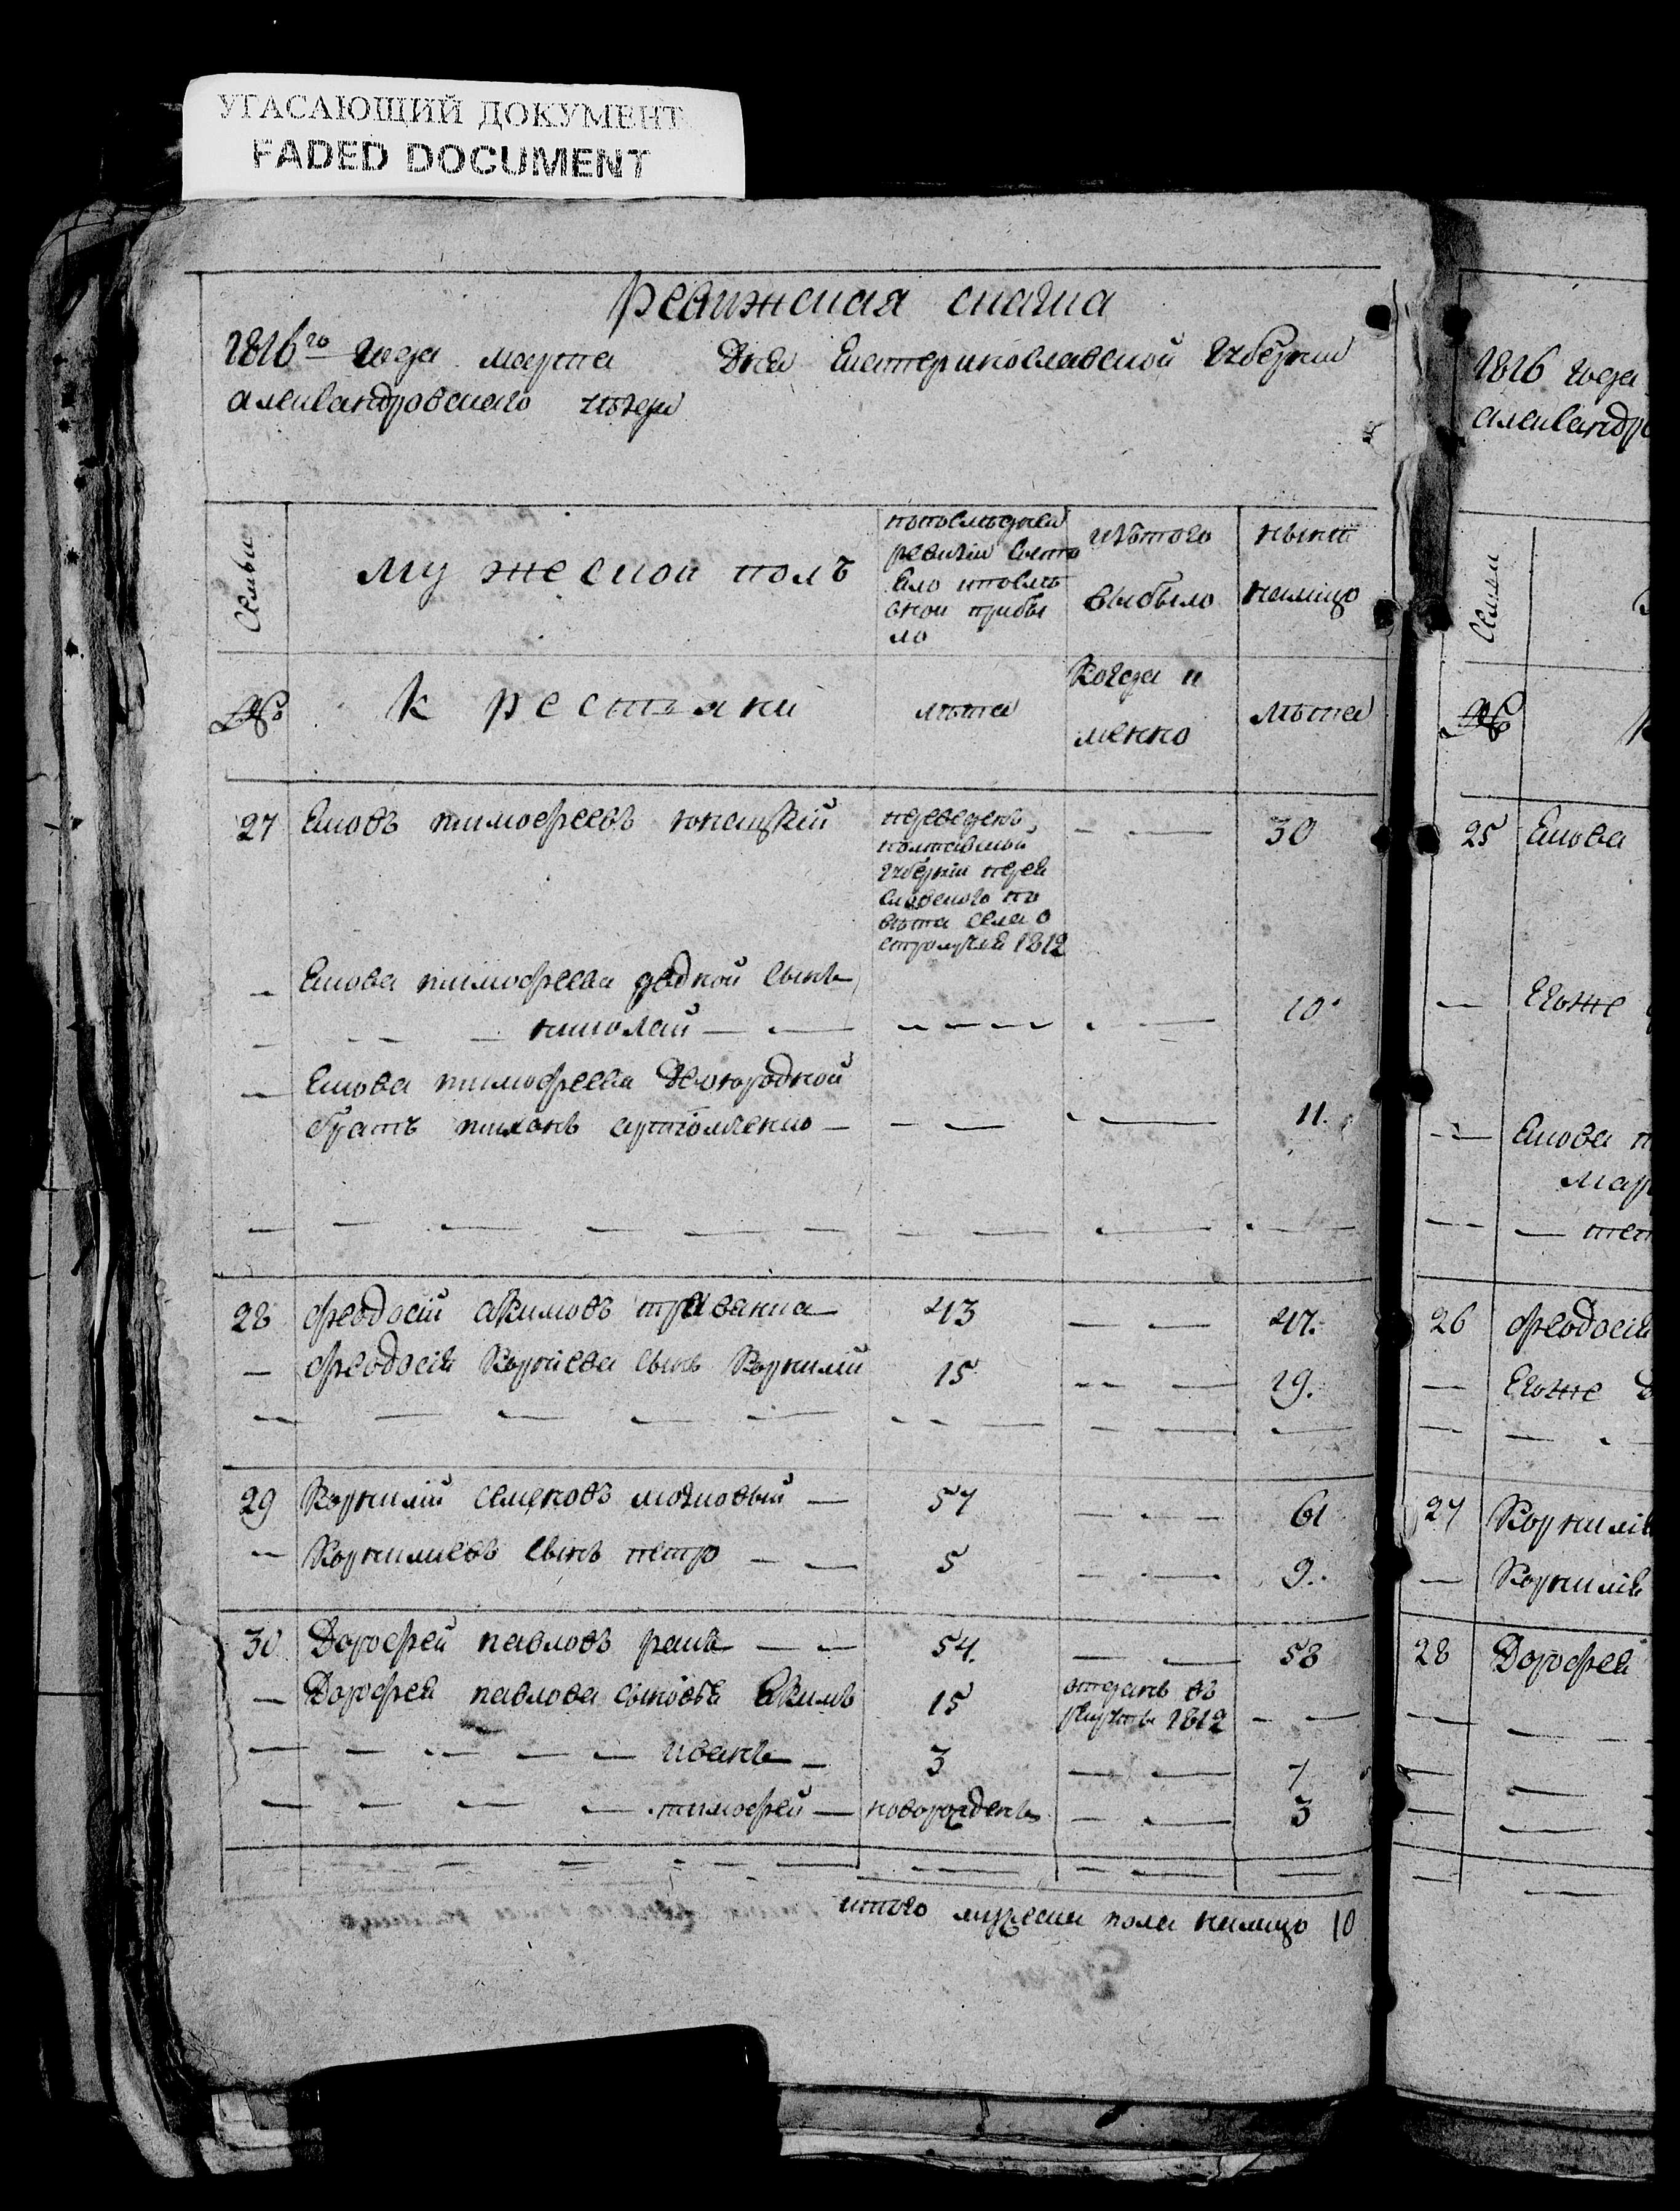 УГАСАЮЩИЙ ДОКУМЕНТ
FADED DOCUMENT
Ревижская скаска
1816го года марта Дня Екатеринославской губернии
александровского уезда
Семьи
мужеской полъ
попоследней
ревизии состо
яло ипосле
оной прибы
ло
изтого
выбыло
ныне
налицо
№
крестьяне
лета
Когда и
менно
лета
27 Яковъ тимофеевъ
переведенъ
полтавской
губернии перея
славского по
вета села
1812
30
Якова тимофеева родной сынъ
николай
10
Якова тимофеева Двоюродной
братъ тихонъ
11.
28 феодосій Якимовъ 43 47.
феодосія сынъ Корнилій 15 19.
29 Корнилій семеновъ 57 61
Корниліевъ сынъ петро 5 9.
30 Дорофей павловъ ракъ 54. 58
Дорофея павлова сыновья Якимъ 15
отданъ въ
рекруты 1812
иванъ 3 7
тимофей новорожденъ 3
итого мужеска пола налицо 10
1816 года
александро
Семьи
№
25 Якова
Егоже
Якова т
мар
26 феодосія
Егоже
27 Корнилія
Корнилія
28 Дорофея